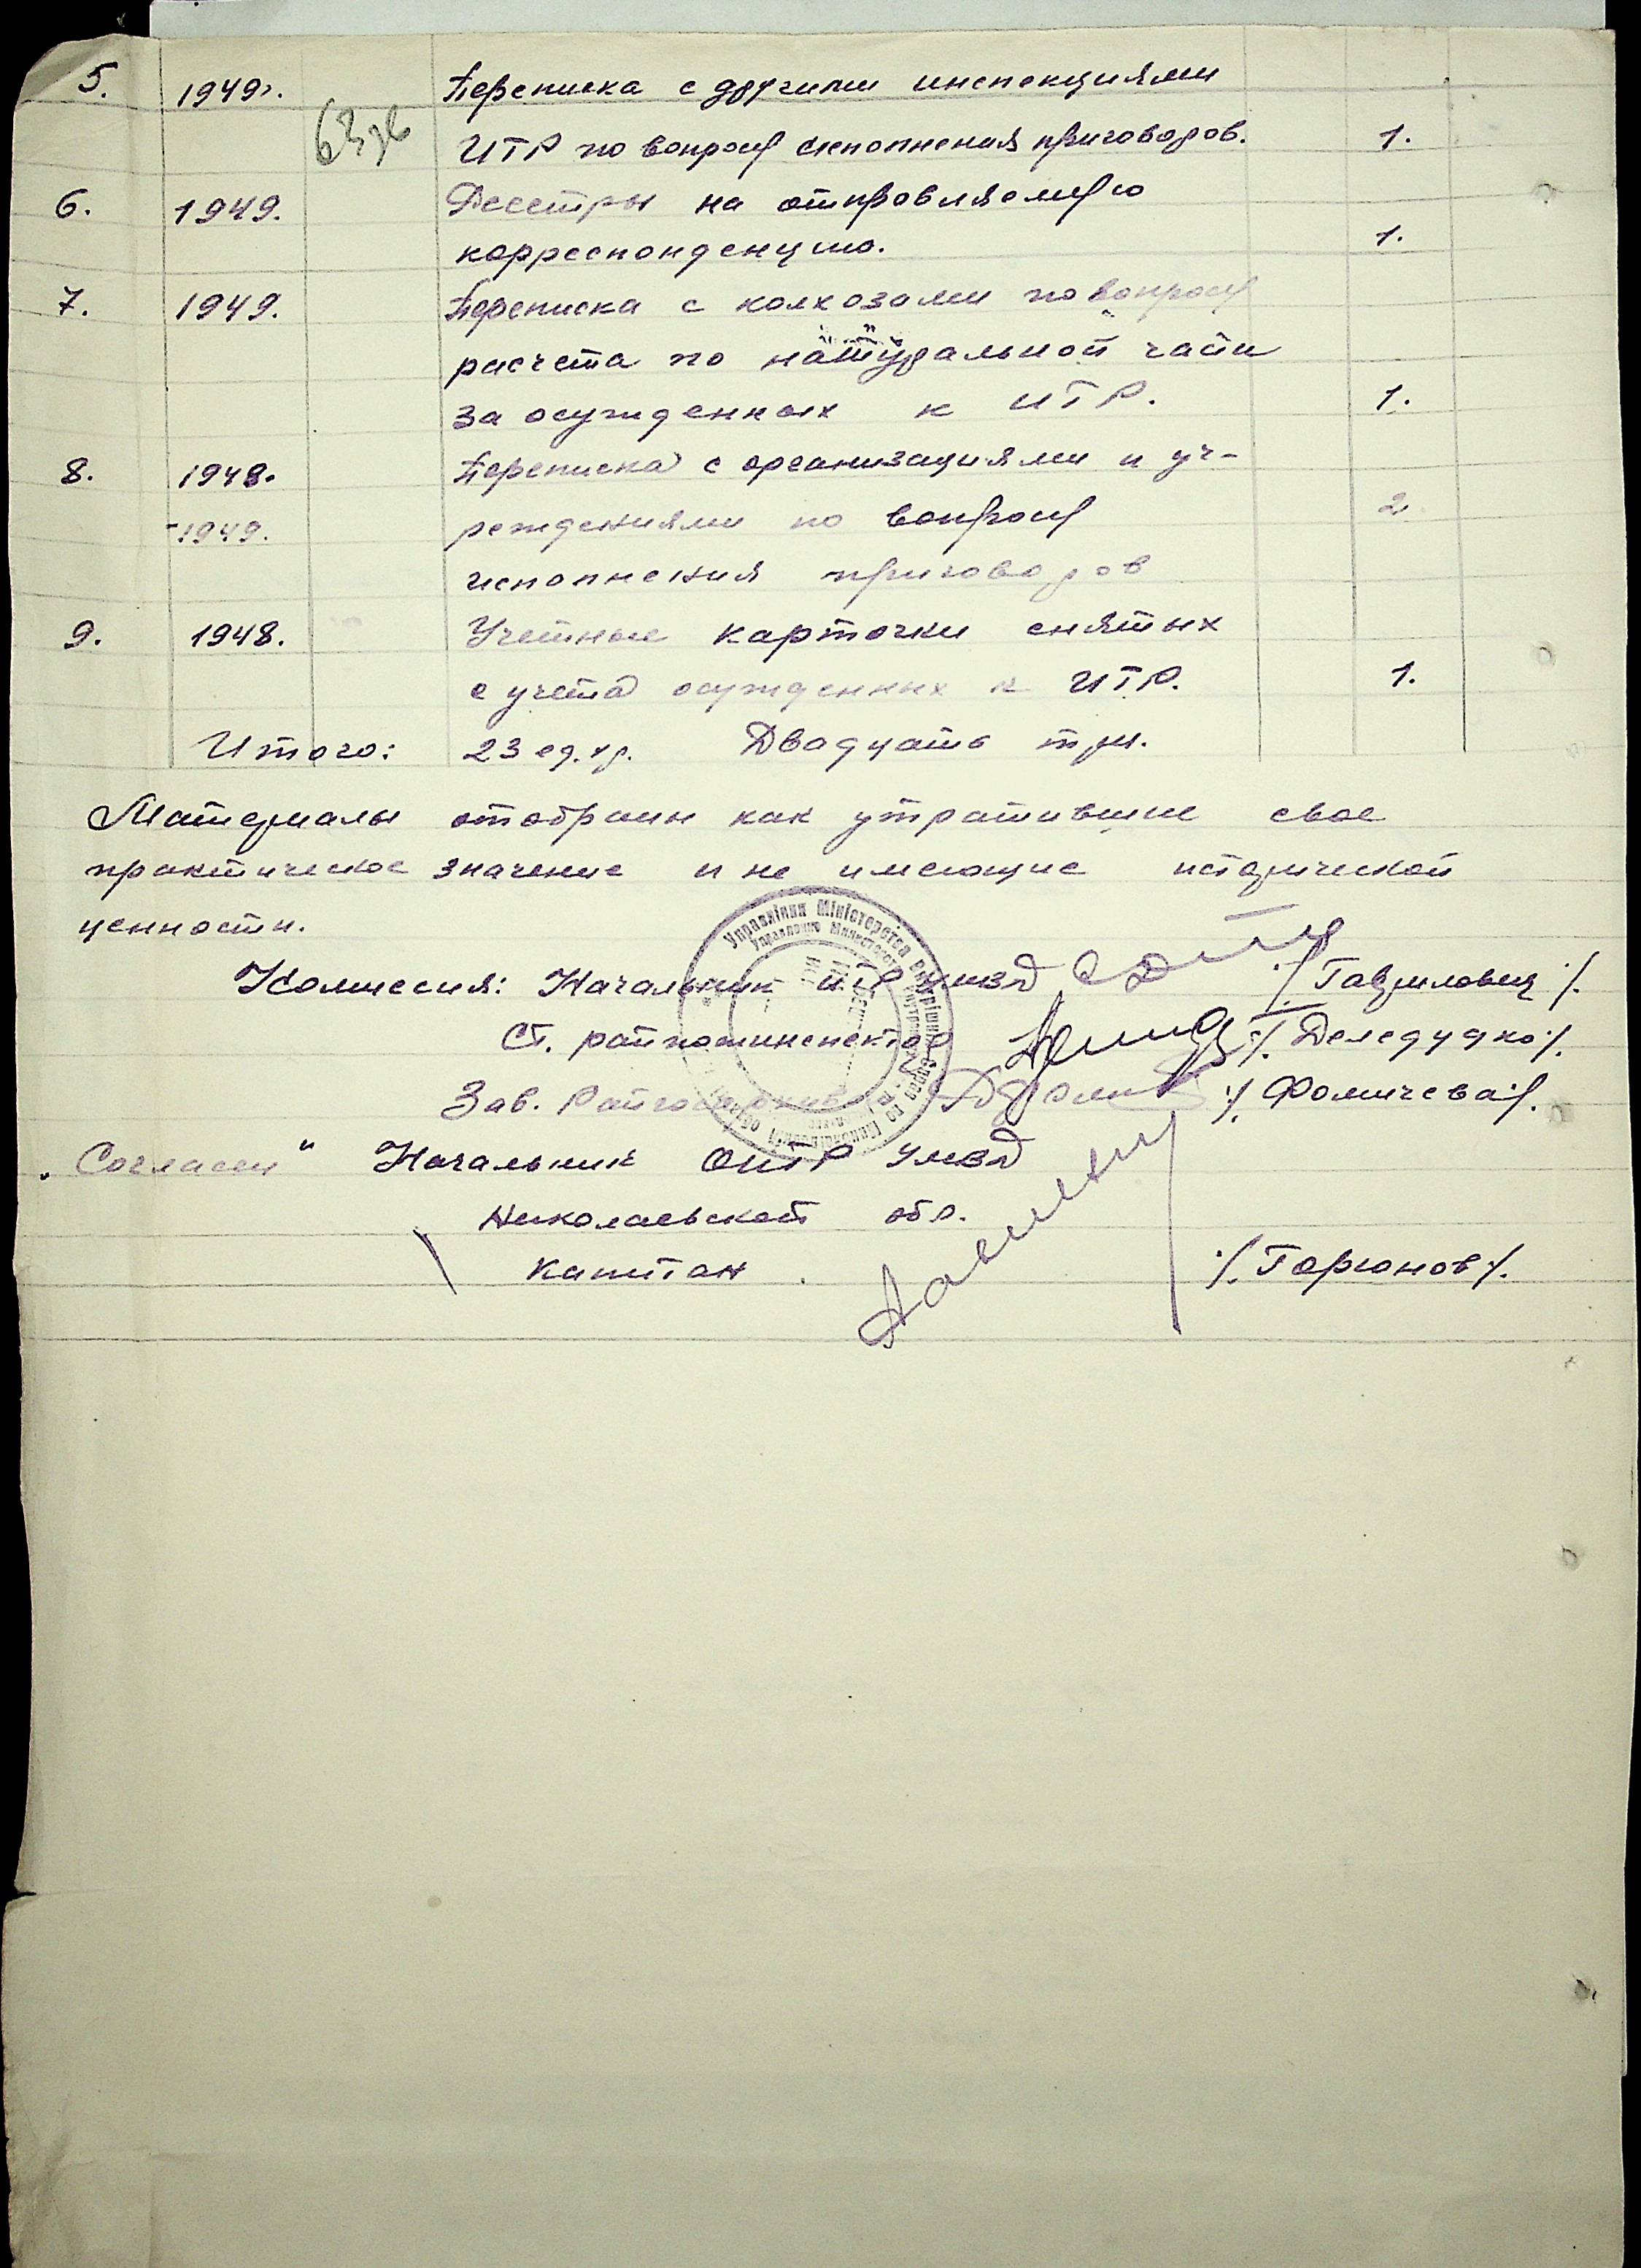 5. 1949г. Переписка с другими инспекциями
ИТР по вопросу исполнения приговоров. 1.
6. 1949. Реестры на отправляемую
корреспонденцию. 1.
7. 1949. Переписка с колхозами по вопросу
расчета по натуральной части
за осужденных к ИТР. 1.
8. 1948. Переписка с организациями и уч-
-1949. реждениями по вопросу 2
исполнения приговоров
9. 1948. Учетные карточки снятых
с учета осужденных к ИТР. 1.
Итого: 23 ед. хр. Двадцать три.
Материалы отобраны как утратившие свое
практическое значение и не имеющие исторической
ценности.
Комиссия: Начальник ИТР УМВД /Гаврилович/.
Ст. райпоминспектор ./. Деледудко ./.
Зав. Райгосархивом ./. Фомичева ./.
„Согласен" Начальник ОИТР УМВД
Николаевской обл.
Капитан ./. Горюнов ./.